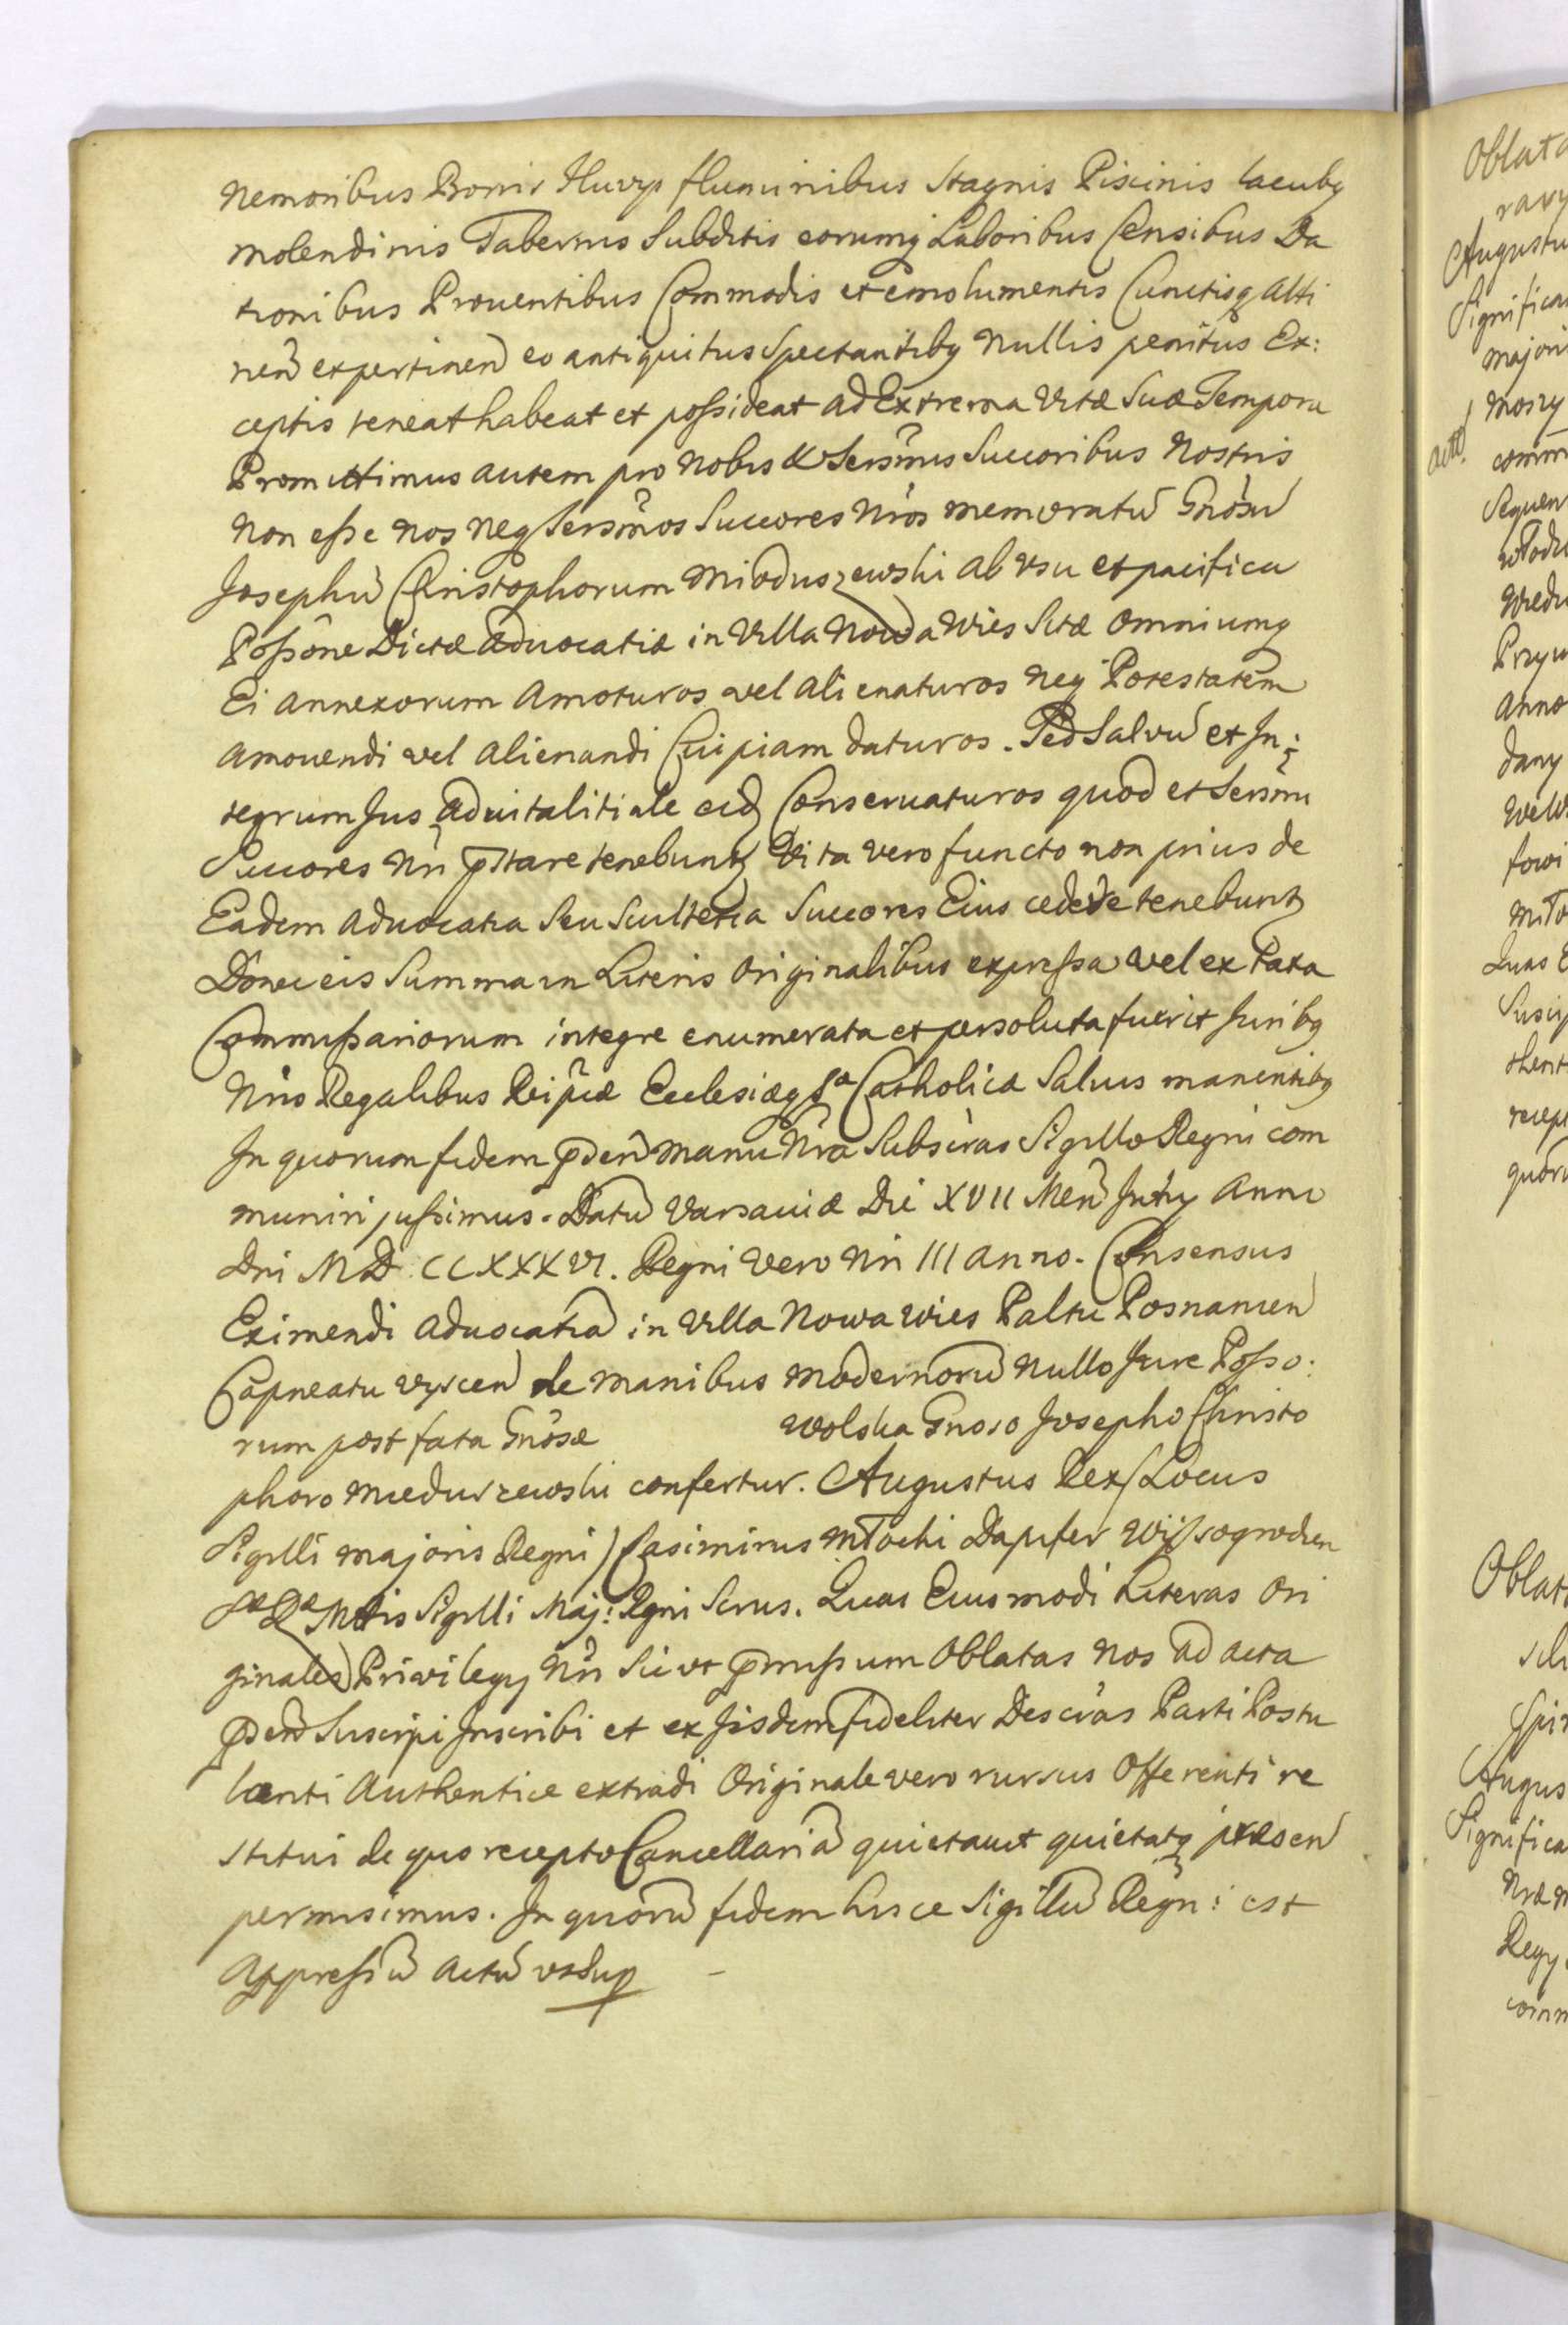 Nemoribus Borris Fluvys fluminibus Stagnis Piscinis lacubq
Molendinis Tabernis Subditis eorumq Laboribus Censibus Da
tionibus Prouentibus Commodis et emolumentis Cunctisq Atti
nen et pertinen eo antiquitus Spectantibq Nullis penitus Ex:
ceptis teneat habeat et possideat ad Extrema Vitæ Suæ Tempora
Promittimus autem pro Nobis & Sersmis Succoribus Nostris
Non esse nos neq Sersmos Succores Nros memoratu Gnosu
Josephu Christophorum Mioduszewski ab vsu et pacifica
Possone Dictæ Aduocatiæ in Villa Nowa Wies Sitæ omniumq
Ei annexorum amoturos vel alienaturos neq Potestatem
amouendi vel alienandi Cuipiam daturos. Sed Saluu et In:
tegrum Jus aduitalitiale eid Conseruaturos quod et Sersmi
Succores Nri pstare tenebunt Vita vero functo non prius de
Eadem aduocatia Seu Scultetia Succores Eius cedere tenebunt
Donec eis Summa in Literis Originalibus expressa vel ex Taxa
Commissariorum integre enumerata et persoluta fuerit Juribq
Nris Regalibus Reipcæ Ecclesiæq Sæ Catholicæ Saluis manentibq
In quorum fidem psen manu Nra Subscras Sigillo Regni com
muniri jussimus. Datu Varsauiæ Die XVII Men July Anno
Dni MDCCXXXVI. Regni Vero Nri III anno. Consensus
Eximendi aduocatia in Villa Nowa Wies Paltu Posnanien
Capneatu Vyscen de manibus modernoru nullo Jure Posso:
rum post fata Gnosæ Wolska Gnoso Josepho Christo
phoro Mieduszewski confertur. Augustus Rex (Locus
Sigilli majoris Regni) Casimirus Młocki Dapifer Wissogrodien
SæRæMttis Sigilli Maj: Rgni Scrus. Quas Eiusmodi Literas Ori
ginales Privilegy Nri Sic vt pmissum Oblatas Nos ad acta
psen Suscipi Inscribi et ex Iisdem fideliter Descras Parti Postu
lanti Authentice extradi Originale vero rursus Offerenti re
stitui de quo recepto Cancellaria quietauit quietatq præsen
permisimus. In quoru fidem hisce Sigillu Regni est
appressu actu vtsup –
Oblata
Augustu
Significa
majori
mosy
actt.
comm
Sequen
Anno
dany
Quas E
recept
Oblat
Augus
Significa
Regy
comm